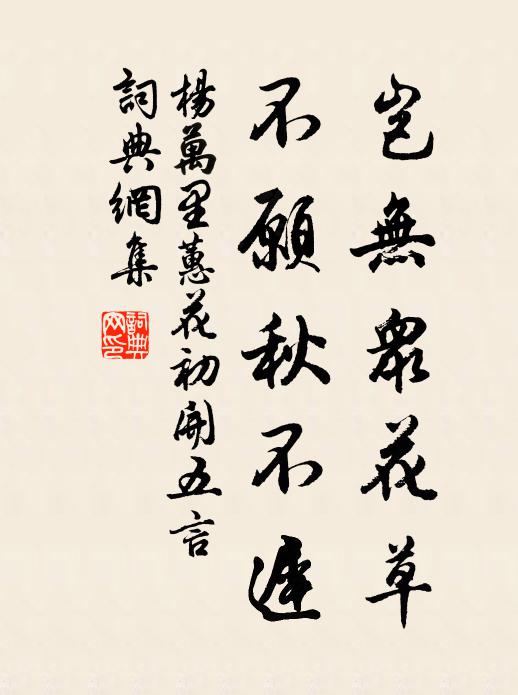 豈無衆花草
不願秋不遲
楊萬里蕙花初開五言
詞典網集
詞典網印